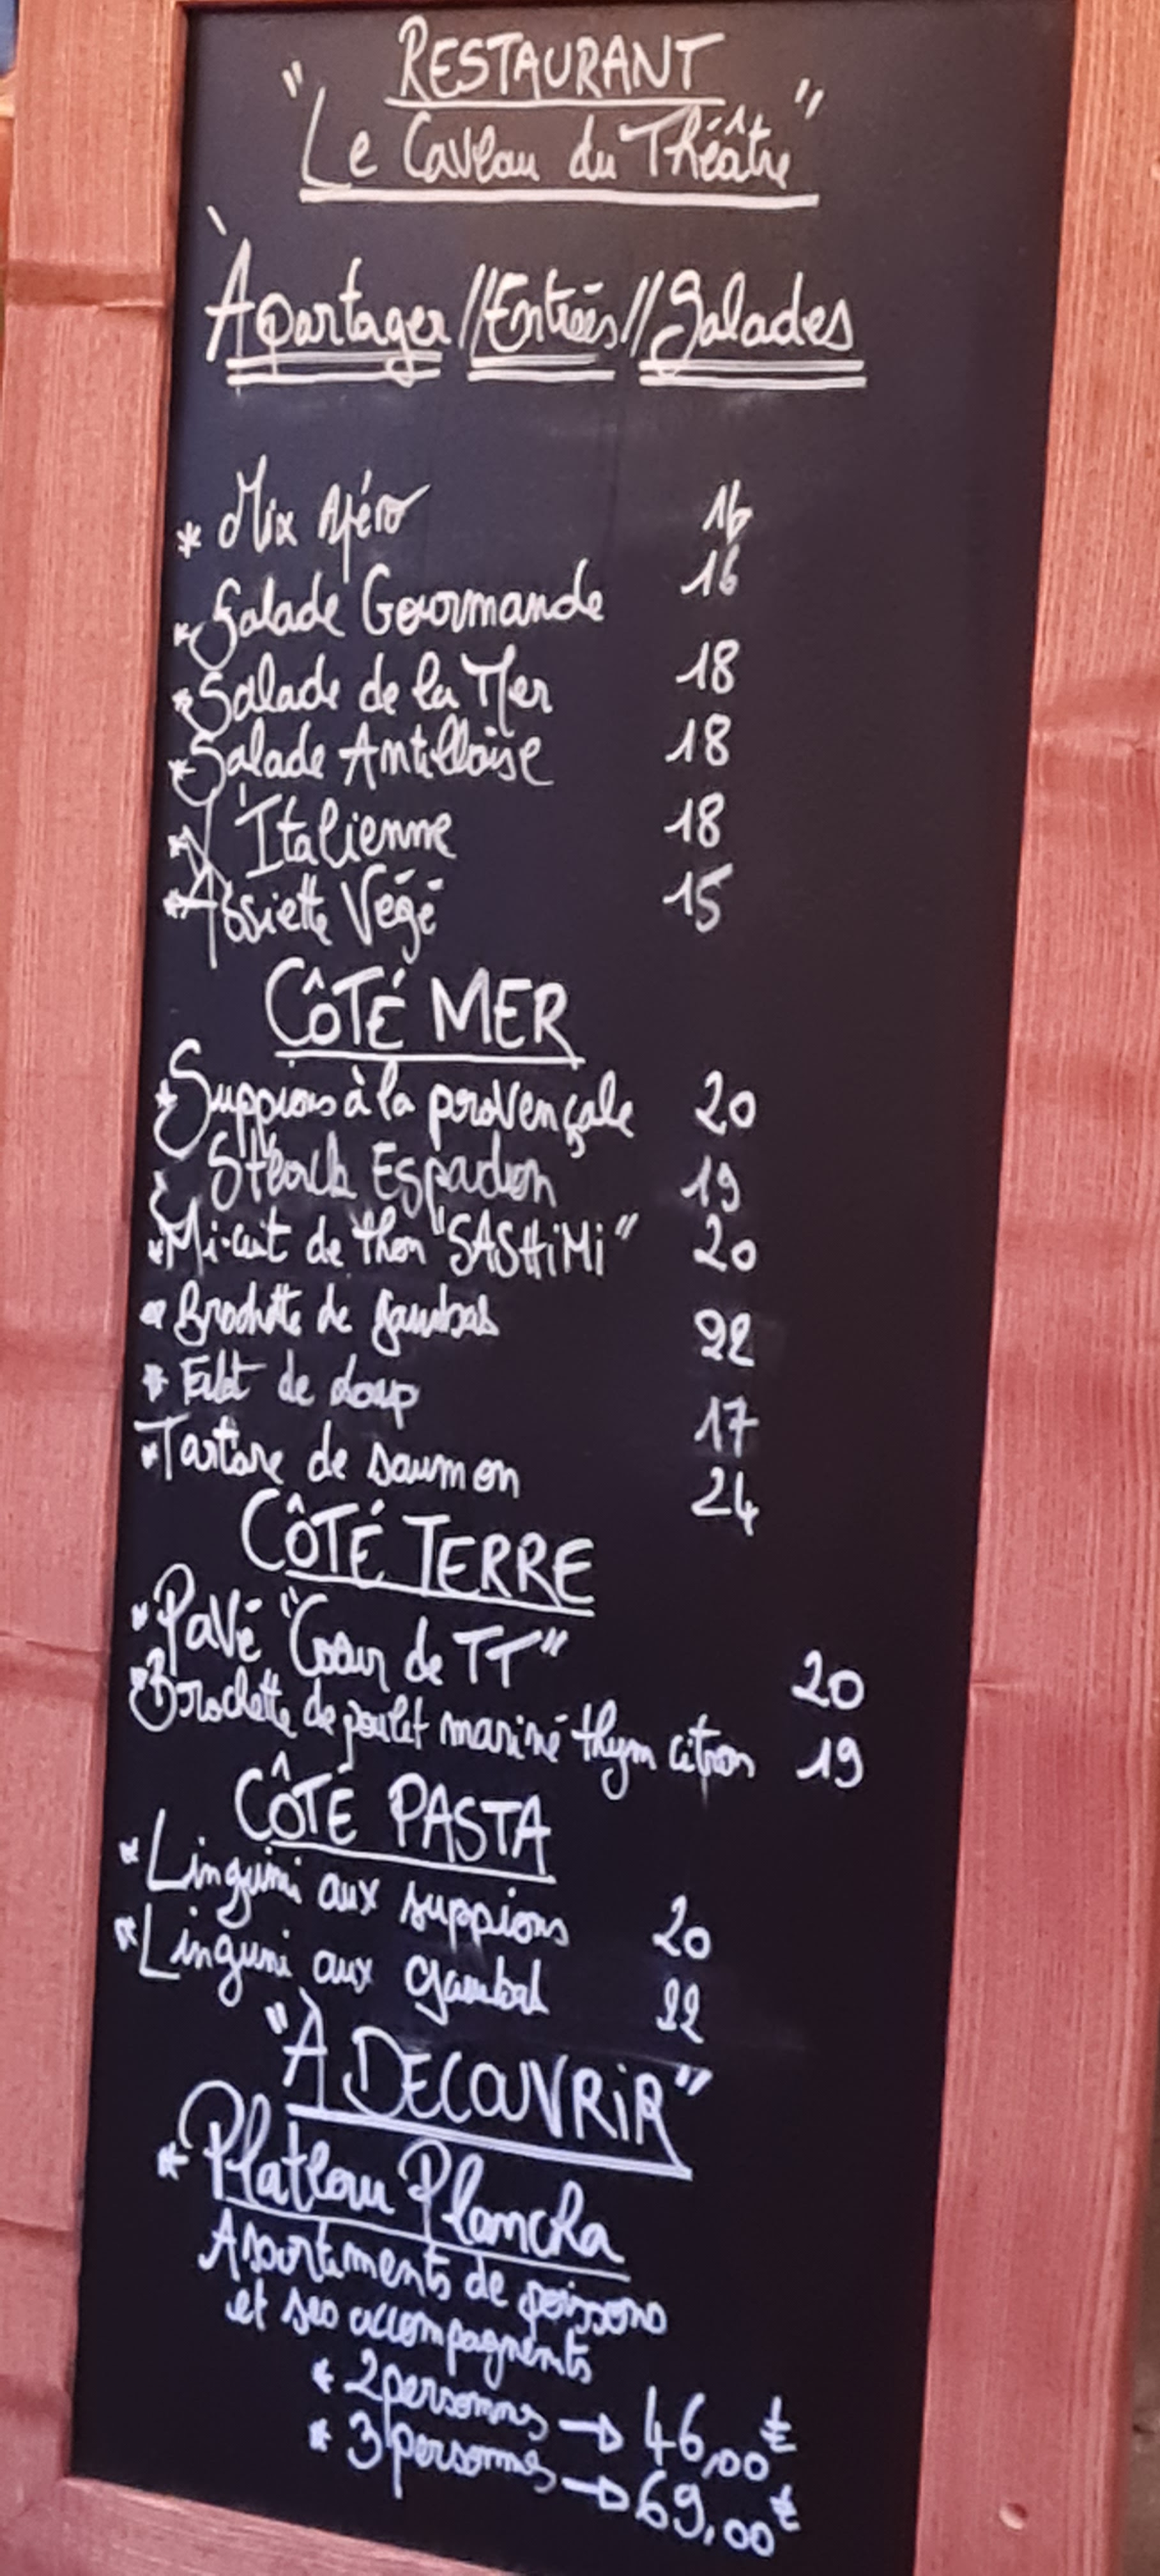 RESTAURANT
"Le Caveau du Théâtre"
À partager // Entrées // Salades
* Mix Apéro 16
* Salade Gourmande 16
* Salade de la Mer 18
* Salade Antillaise 18
* L'Italienne 18
* Assiette Végé 15
CÔTÉ MER
* Suppions à la provençale 20
* Steack Espadon 19
* Mi-cuit de thon "SASHiMi" 20
* Brochette de gambas 22
* Filet de Loup 17
* Tartare de saumon 24
CÔTÉ TERRE
* Pavé "Coeur de TT" 20
* Brochette de poulet mariné thym citron 19
CÔTÉ PASTA
* Linguini aux suppions 20
* Linguni aux gambas 22
"À DECOUVRiR"
* Plateau Plancha
Assortiments de poissons
et ses accompagnents
* 2 personnes → 46,00€
* 3 personnes → 69,00€